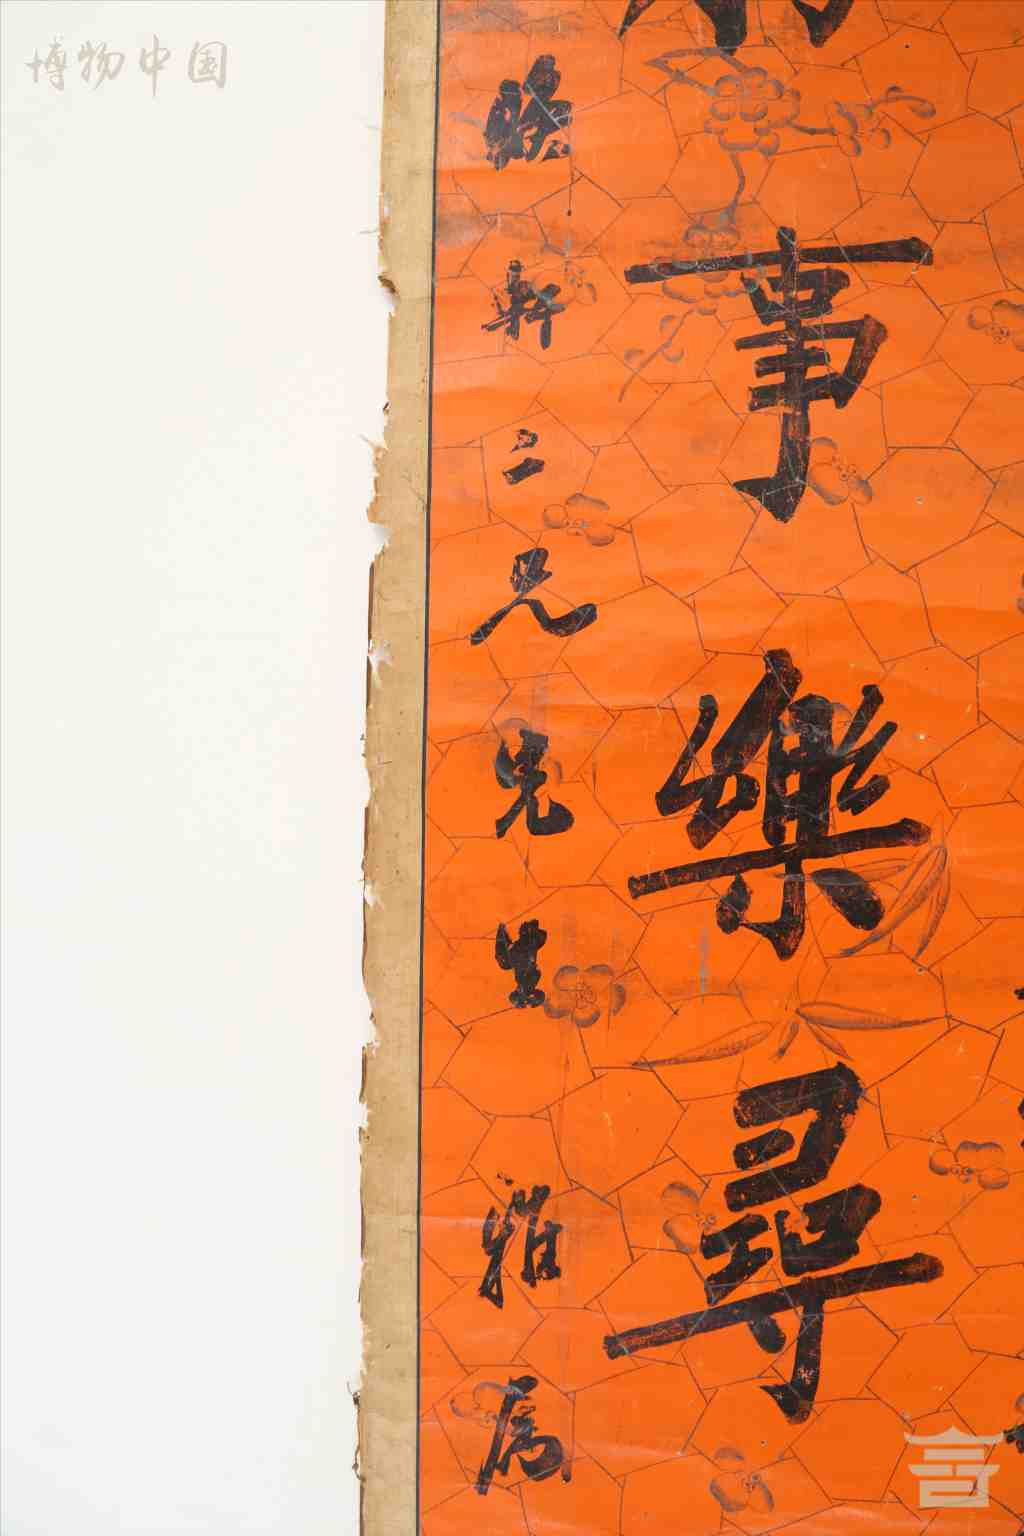 博物中国
事樂尋
軒二兄先生雅属